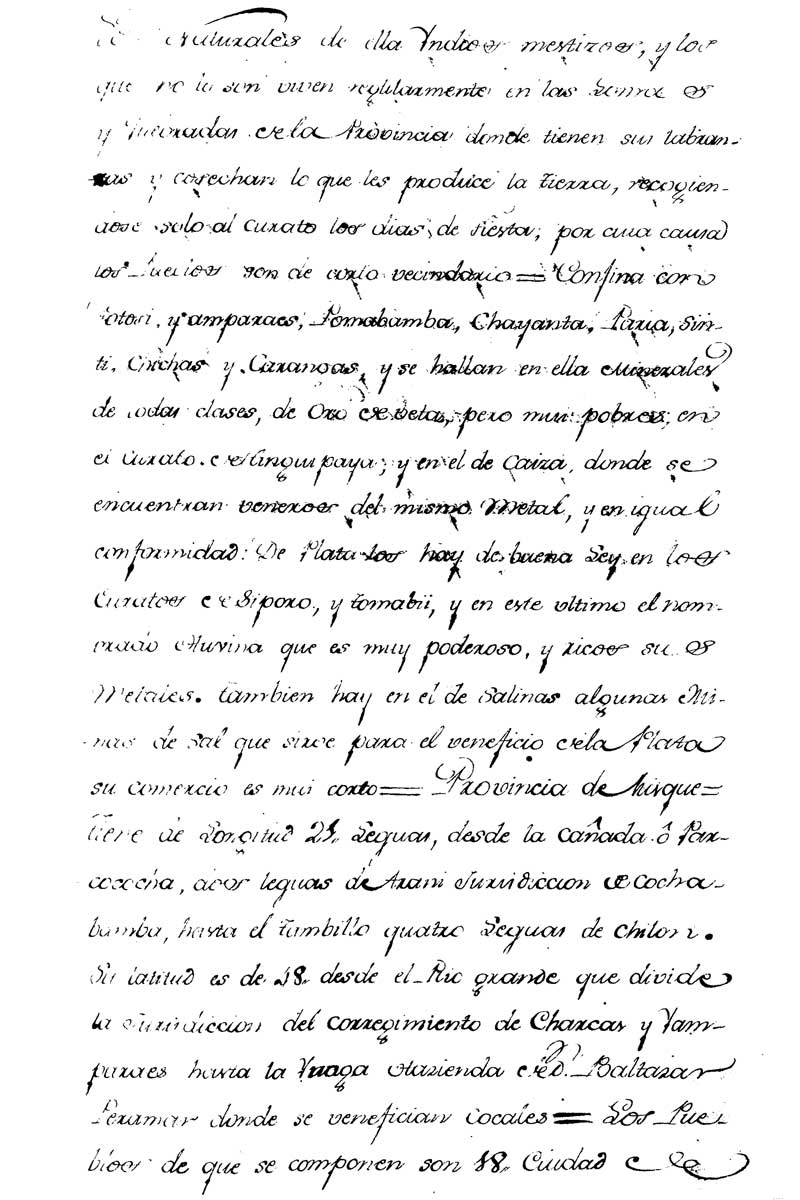 Naturales de ella Yndios mestizos, y los
que no lo son viven reglilarmente en las
y de la Provincia donde tienen sus labran-
zas y cosechan lo que les produce la tierra, recogien-
dose solo al curato los dias de fiesta, por cuia causa
los Pueblos son de corto vecindario = Confina con
Potosi, Yamparaes, Pomabamba, Chayanta, Paria, Sin-
ti, Chichas y Carangas, y se hallan en ella Minerales
de todas clases, de Oro de veta, pero mui pobres, en
el Curato de Tinquipaya; y en el de Caiza, donde se
encuentran veneros del mismo Metal, y en igual
conformidad: De Plata los hay de buena Ley en los
Curatos de Siporo, y tomabii, y en este ultimo el nom-
brado que es muy poderoso, y ricos sus
Metales. tambien hay en el de Salinas algunas Mi-
nas de Sal que sirve para el veneficio de la Plata
su comercio es mui corto = Provincia de Misque =
tiene de Longitud Leguas, desde la cañada ô Par-
cocha, a dos leguas de Arani Jurisdiccion de Cocha-
bamba, hasta el tambillo quatro Leguas de Chilon.
Su latitud es de 18. desde el Rio grande que divide
la Jurisdiccion del corregimiento de Charcas y Yam-
paraes hasta la Yunga Hazienda de Dn. Baltazar
Peramar donde se venefician Cocales = Los Pue-
blos de que se componen son 18. Ciudad de